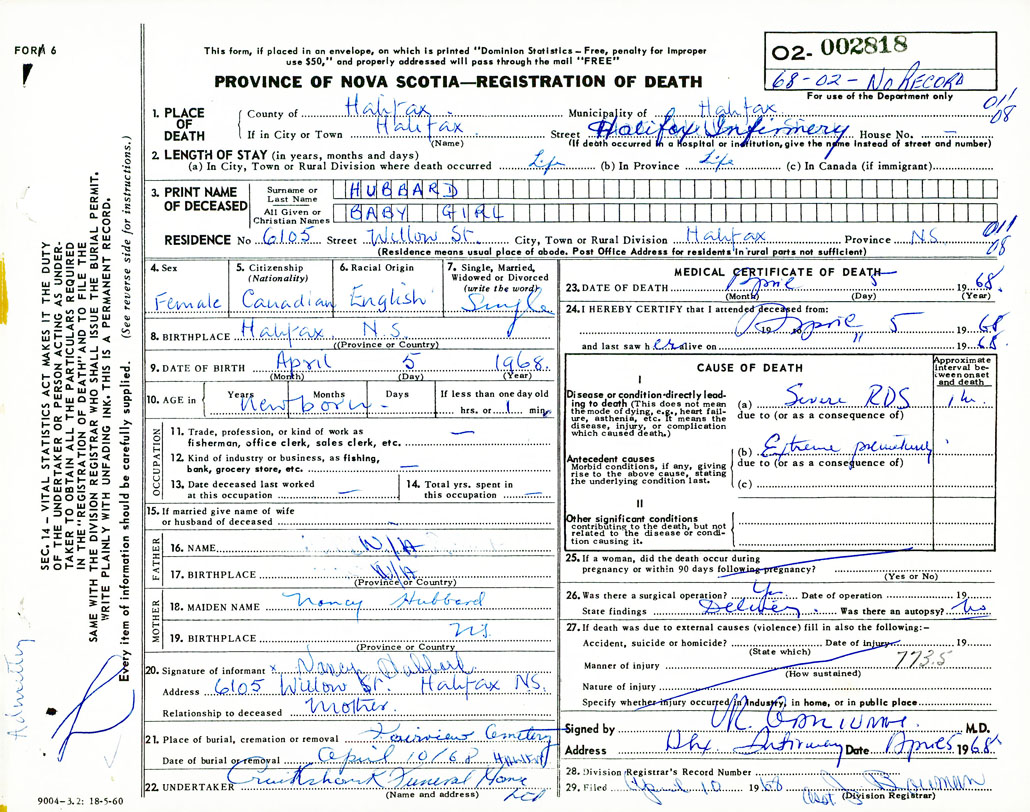 FORM 6
This form, if placed in an envelope, on which is printed "Dominion Statistics – Free, penalty for improper
use $50," and properly addressed will pass through the mail "FREE"
PROVINCE OF NOVA SCOTIA—REGISTRATION OF DEATH
02- 002818
68-02-NO RECORD
For use of the Department only
011
08
1. PLACE OF DEATH
County of Halifax Municipality of Halifax
If in City or Town Halifax Street Halifax Infirmery House No. —
(Name) (If death occurred in a hospital or institution, give the name instead of street and number)
2. LENGTH OF STAY (in years, months and days)
(a) In City, Town or Rural Division where death occurred Life (b) In Province Life (c) In Canada (if immigrant)
3. PRINT NAME OF DECEASED
Surname or Last Name HUBBARD
All Given or Christian Names BABY GIRL
RESIDENCE No 6105 Street Willow St. City, Town or Rural Division Halifax Province N.S.
011
08
(Residence means usual place of abode. Post Office Address for residents in rural parts not sufficient)
4. Sex
Female
5. Citizenship
(Nationality)
Canadian
6. Racial Origin
English
7. Single, Married,
Widowed or Divorced
(write the word)
Single
8. BIRTHPLACE Halifax N.S.
(Province or Country)
9. DATE OF BIRTH April 5 1968
(Month) (Day) (Year)
10. AGE in Years Months Days If less than one day old
Newborn hrs. or 1 min.
OCCUPATION
11. Trade, profession, or kind of work as
fisherman, office clerk, sales clerk, etc. —
12. Kind of industry or business, as fishing,
bank, grocery store, etc. —
13. Date deceased last worked
at this occupation —
14. Total yrs. spent in
this occupation —
15. If married give name of wife
or husband of deceased
FATHER
16. NAME N/A
17. BIRTHPLACE N/A
(Province or Country)
MOTHER
18. MAIDEN NAME Nancy Hubbard
19. BIRTHPLACE N.S.
(Province or Country)
20. Signature of informant x Nancy Hubbard
Address 6105 Willow St. Halifax N.S.
Relationship to deceased Mother.
21. Place of burial, cremation or removal Fairview Cemetery
Date of burial or removal April 10/68
22. UNDERTAKER Cruikshank Funeral Home
(Name and address) Ltd
9004-3.2: 18-5-60
MEDICAL CERTIFICATE OF DEATH
23. DATE OF DEATH April 5 1968.
(Month) (Day) (Year)
24. I HEREBY CERTIFY that I attended deceased from:
19 to April 5 1968
and last saw her alive on " 1968.
CAUSE OF DEATH
Approximate
interval be-
tween onset
and death
I
Disease or condition directly lead-
ing to death (This does not mean
the mode of dying, e.g., heart fail-
ure, asthenia, etc. It means the
disease, injury, or complication
which caused death.)
(a) Severe RDS
due to (or as a consequence of)
Antecedent causes
Morbid conditions, if any, giving
rise to the above cause, stating
the underlying condition last.
(b) Extreme prematurity
due to (or as a consequence of)
(c)
II
Other significant conditions
contributing to the death, but not
related to the disease or condi-
tion causing it.
25. If a woman, did the death occur during
pregnancy or within 90 days following pregnancy?
(Yes or No)
26. Was there a surgical operation? Yes Date of operation 19
State findings Delivery Was there an autopsy? No
27. If death was due to external causes (violence) fill in also the following:–
Accident, suicide or homicide? Date of injury 19
(State which)
773.5
Manner of injury
(How sustained)
Nature of injury
Specify whether injury occurred in industry, in home, or in public place
Signed by M.D.
Address Hfx Infirmary Date April 5 1968
28. Division Registrar's Record Number
29. Filed April 10 1968
(Division Registrar)
SEC. 14 – VITAL STATISTICS ACT MAKES IT THE DUTY
OF THE UNDERTAKER OR PERSON ACTING AS UNDER-
TAKER TO OBTAIN ALL THE PARTICULARS REQUIRED
IN THE "REGISTRATION OF DEATH" AND TO FILE THE
SAME WITH THE DIVISION REGISTRAR WHO SHALL ISSUE THE BURIAL PERMIT.
WRITE PLAINLY WITH UNFADING INK. THIS IS A PERMANENT RECORD.
Every item of information should be carefully supplied. (See reverse side for instructions.)